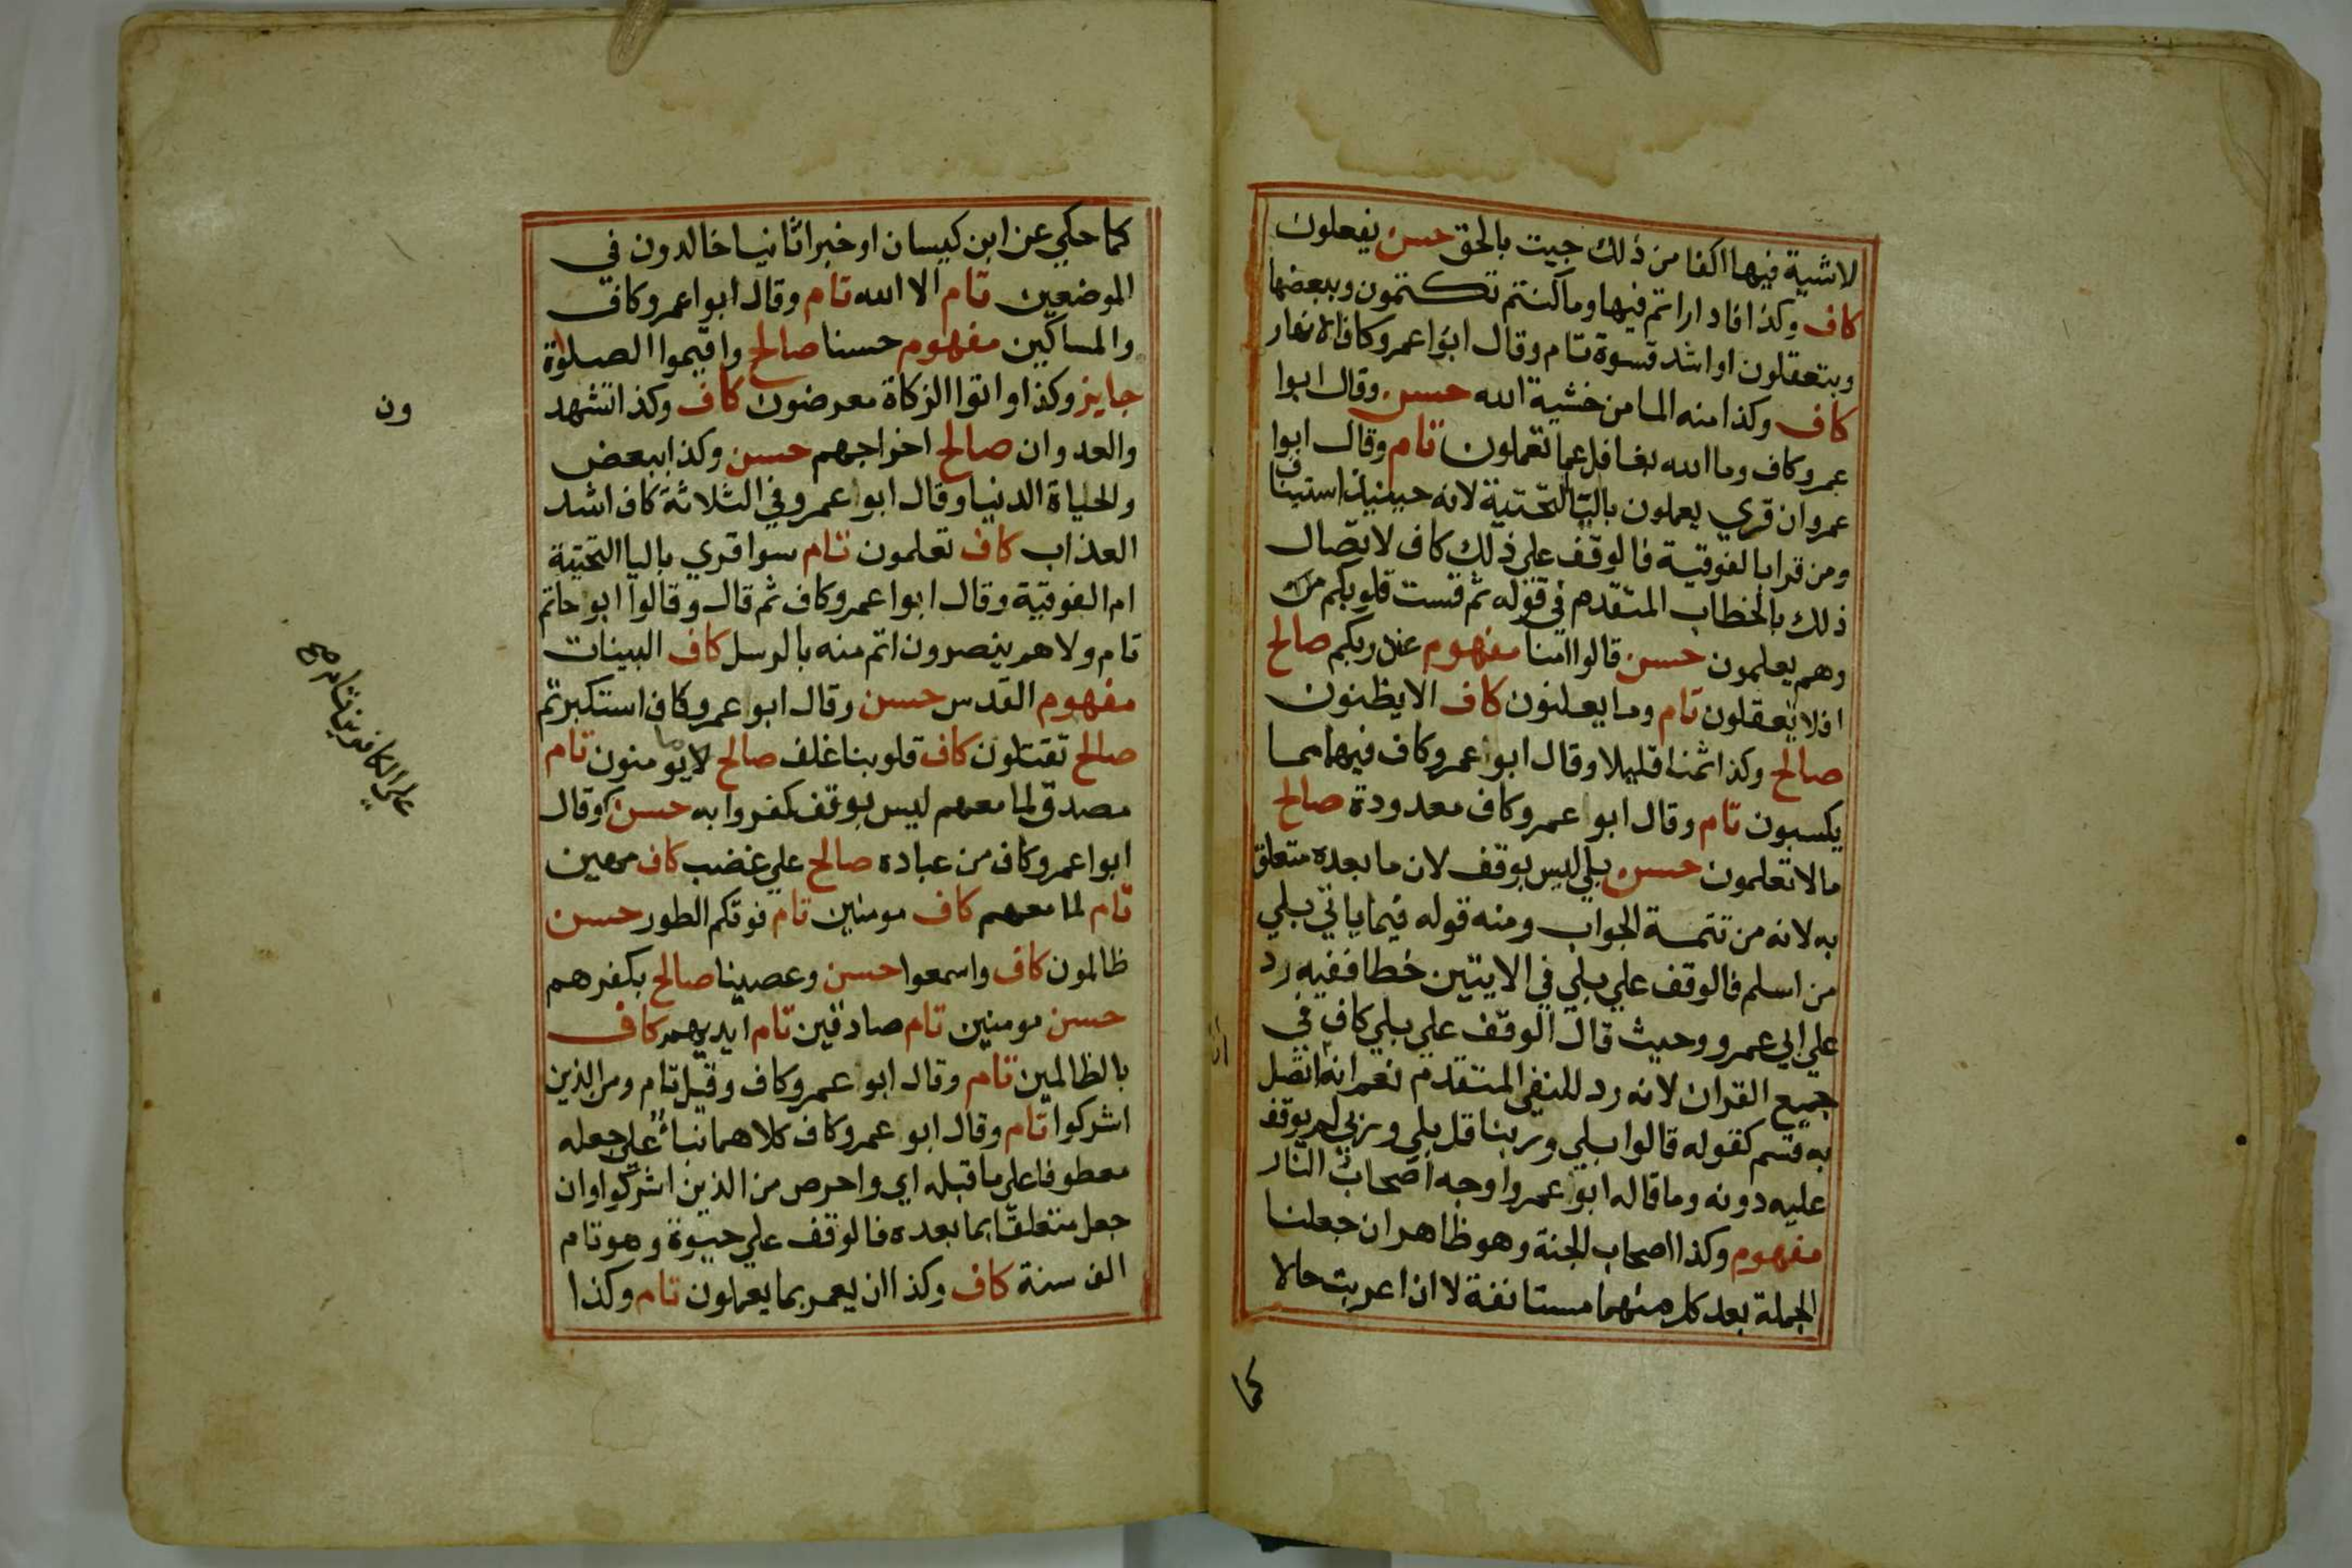 لاشية فيها اكفا من ذلك جيت بالحق حسن يفعلون
كاف وكذا فاداراتم فيها وما كنتم تكتمون وببعضها
وبتعقلون او اشد قسوة تام وقال ابوا عمرو كاف الانهار
كاف وكذا منه الما من خشية الله حسن وقال ابوا
عمرو كاف وما الله بغافل عما تعملون تام وقال ابوا
عمرو ان قري يعملون باليا التحتية لانه حينيذ استيناف
ومن قرا بالفوقية فالوقف علي ذلك كاف لاتصال
ذلك بالخطاب المتقدم في قوله ثم قست قلوبكم من
وهم يعلمون حسن قالوا امنا مفهوم عند ربكم صالح
افلا تعقلون تام وما يعلنون كاف الا يظنون
صالح وكذا ثمنا قليلا وقال ابوا عمرو كاف فيهما مما
يكسبون تام وقال ابوا عمرو كاف معدودة صالح
مالا تعلمون حسن بلي ليس بوقف لان ما بعده متعلق
به لانه من تتمة الجواب ومنه قوله فيما ياتي بلي
من اسلم فالوقف علي بلي في الايتين خطا ففيه رد
علي ابي عمرو وحيث قال الوقف علي بلي كاف في
جميع القران لانه رد للنفي المتقدم نعم انه اتصل
به قسم كقوله قالوا بلي وربنا قل بلي وربي لم يوقف
عليه دونه وما قاله ابوا عمرو اوجه اصحاب النار
مفهوم وكذا اصحاب الجنة وهو ظاهر ان جعلنا
الجملة بعد كل منهما مستانفة لا ان اعربت حالا
كما
كما حكي عن ابن كيسان او خبرا ثانيا خالدون في
الموضعين تام الا الله تام وقال ابوا عمرو كاف
والمساكين مفهوم حسنا صالح واقيموا الصلاة
جايز وكذا واتوا الزكاة معرضون كاف وكذا تشهد
ون
والعدوان صالح اخراجهم حسن وكذا ببعض
والحياة الدنيا وقال ابوا عمرو في الثلاثة كاف اشد
العذاب كاف تعلمون تام سوا قري باليا التحتية
ام الفوقية وقال ابوا عمرو كاف ثم قال وقالوا ابو حاتم
تام ولا هم ينصرون اتم منه بالرسل كاف البينات
مفهوم القدس حسن وقال ابوا عمرو كاف استكبرتم
صالح تقتلون كاف قلوبنا غلف صالح لا يومنون تام
ما
مصدق لما معهم ليس بوقف كفروا به حسن وقال
علي الكافرين تام صح
ابوا عمرو كاف من عباده صالح علي غضب كاف مهين
تام لما معهم كاف مومنين تام فوقكم الطور حسن
ظالمون كاف واسمعوا حسن وعصينا صالح بكفرهم
حسن مومنين تام صادقين تام ايديهم كاف
بالظالمين تام وقال ابوا عمرو كاف وقيل تام ومن الذين
اشركوا تام وقال ابوا عمرو كاف كلاهما بناء علي جعله
معطوفا علي ما قبله اي واحرص من الذين اشركوا وان
جعل متعلقا بما بعده فالوقف علي حيوة وهو تام
الف سنة كاف وكذا ان يعمر بما يعملون تام وكذا